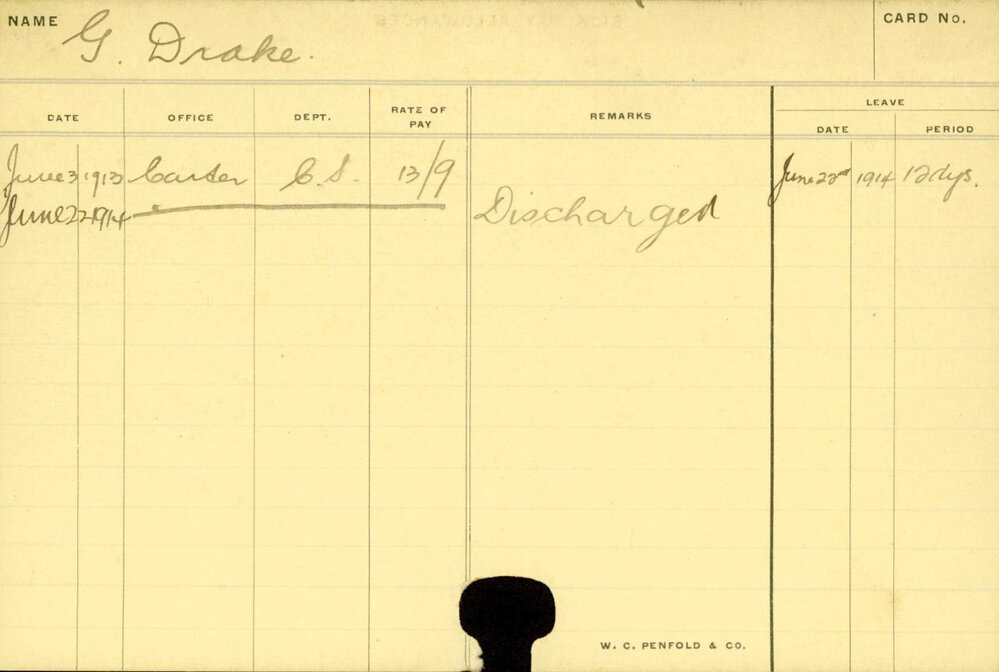 NAME G. Drake. CARD No.
LEAVE
DATE OFFICE DEPT. RATE OF PAY REMARKS DATE PERIOD
June 3 1913 Carter C.S. 13/9 June 22nd 1914 12 dys.
June 22 1914 Discharged
W. C. PENFOLD & CO.